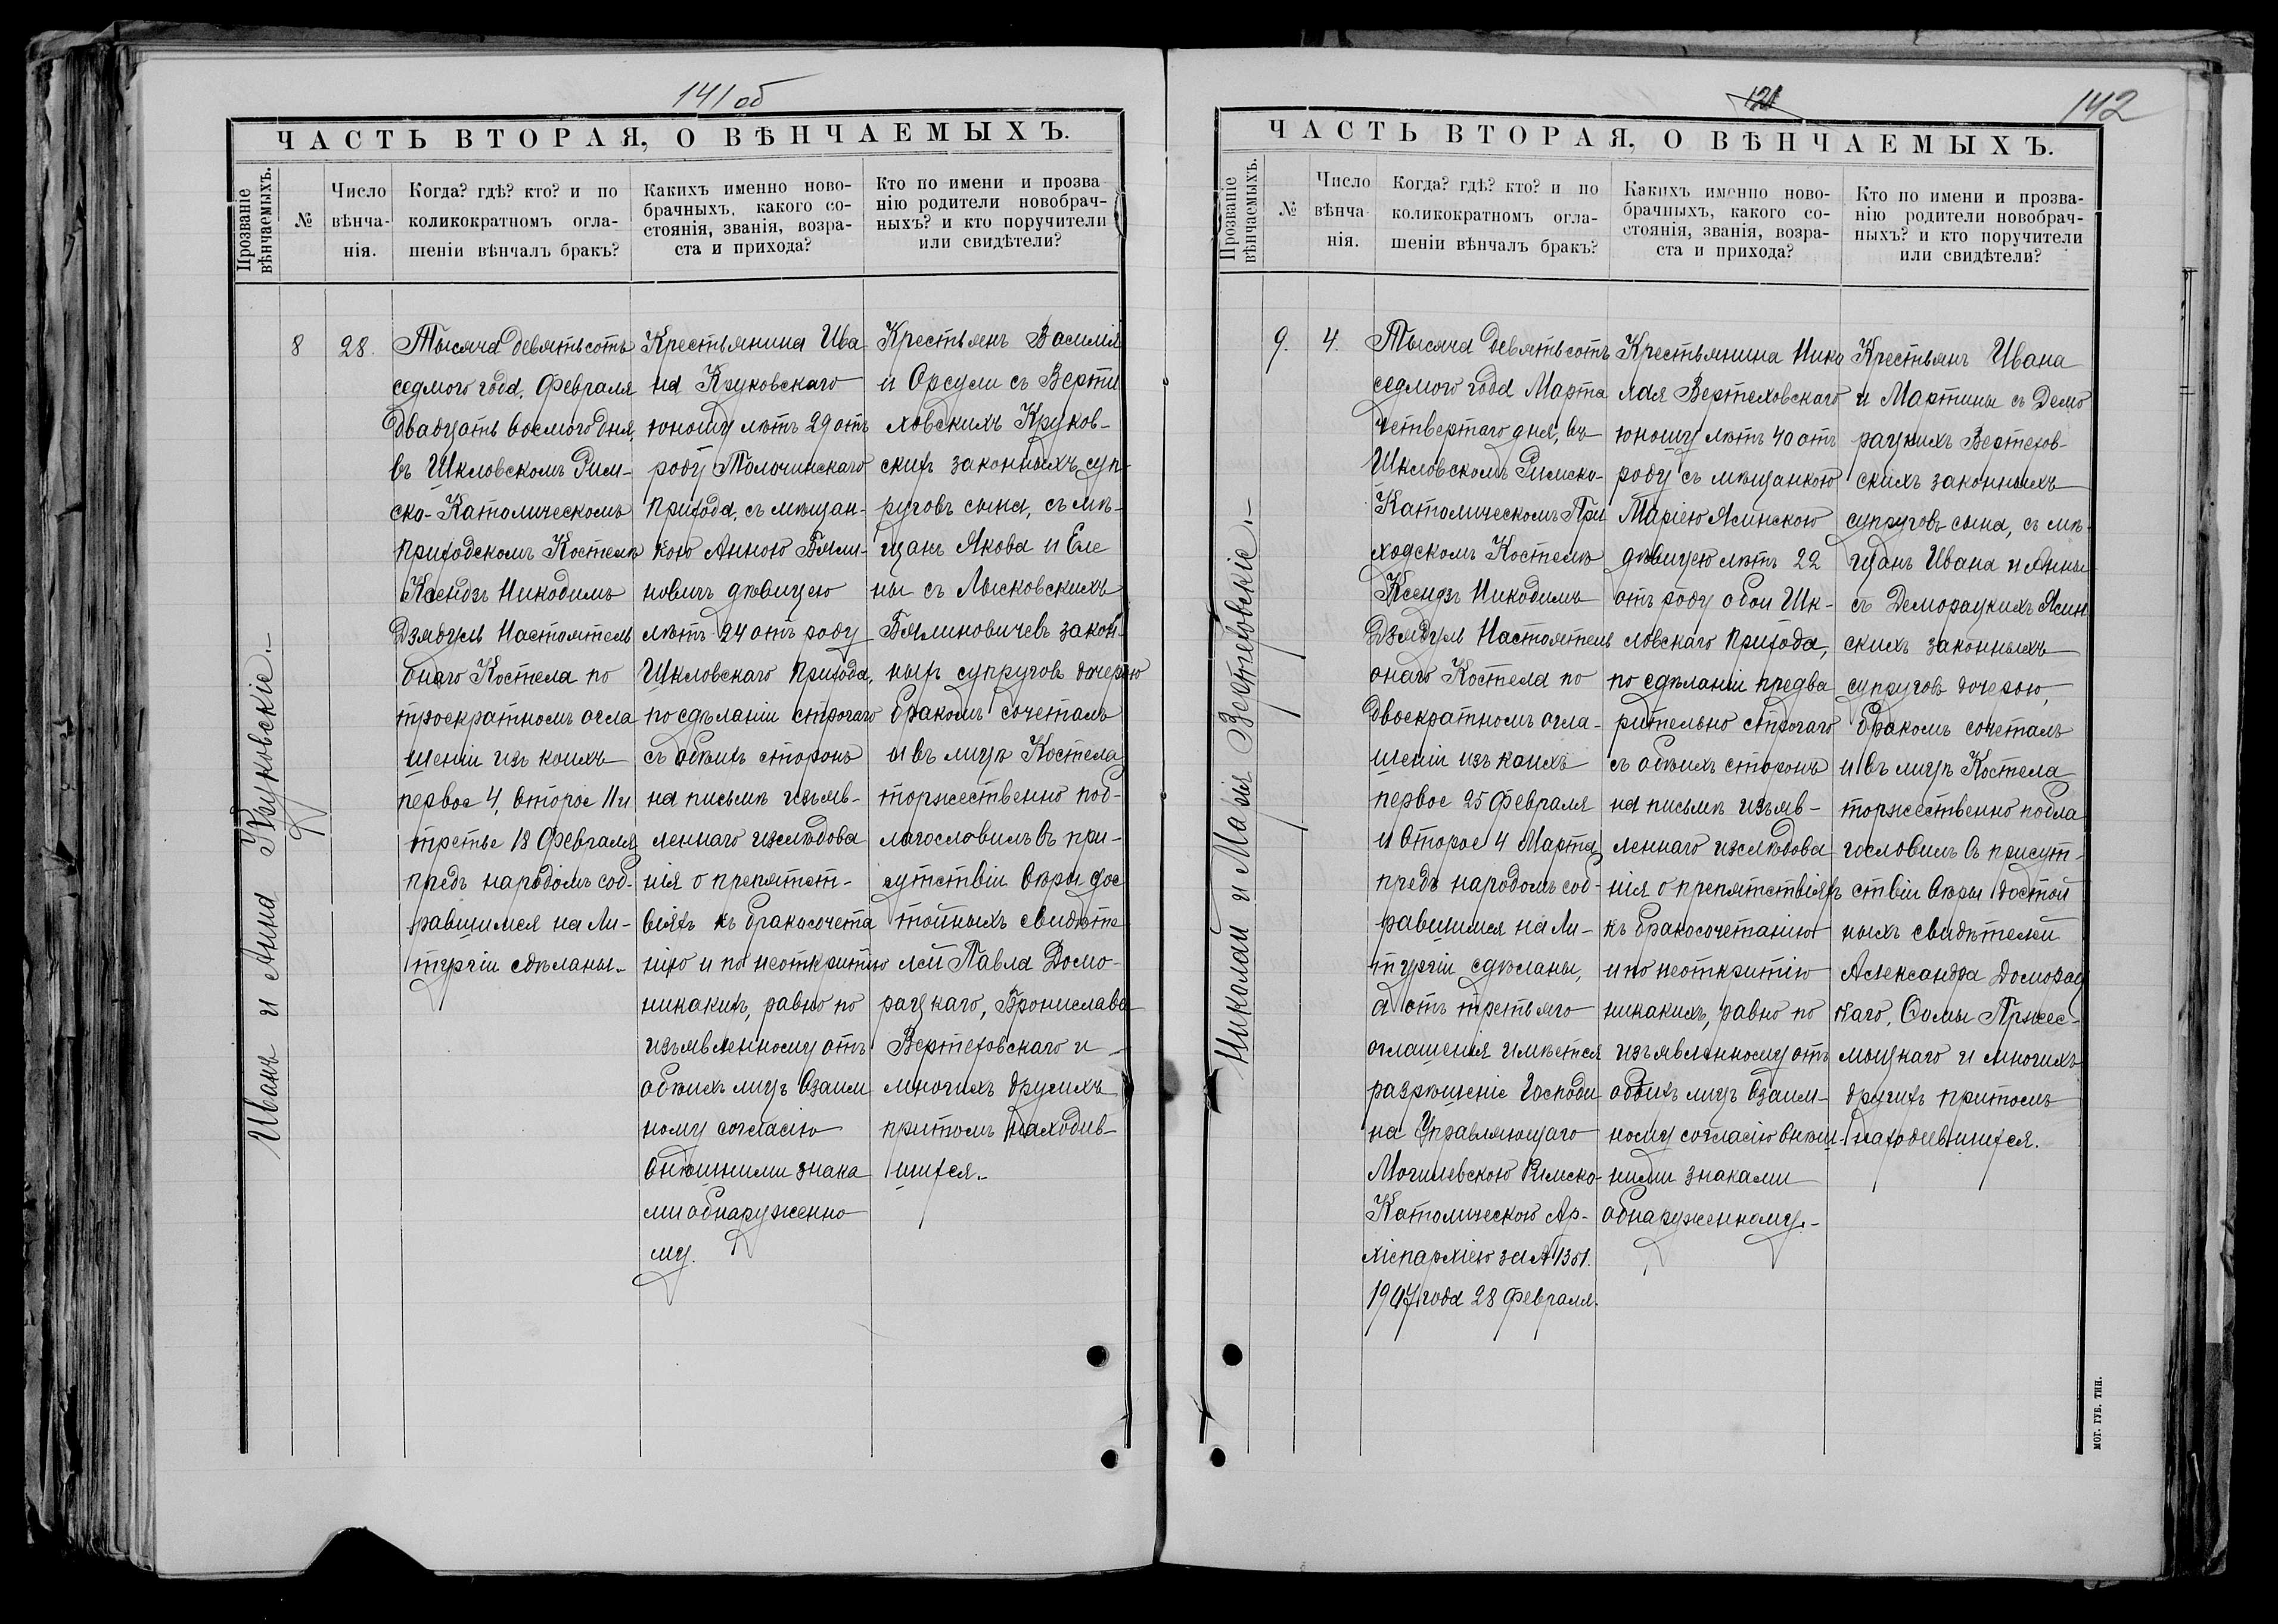 141 об
ЧАСТЬ ВТОРАЯ, О ВѢНЧАЕМЫХЪ.
Прозваніе
вѣнчаемыхъ.
№
Число
вѣнча-
нія.
Когда? гдѣ? кто? и по
коликократномъ огла-
шеніи вѣнчалъ бракъ?
Какихъ именно ново-
брачныхъ, какого со-
стоянія, званія, возра-
ста и прихода?
Кто по имени и прозва
нію родители новобрач-
ныхъ? и кто поручители
или свидѣтели?
Иванъ и Анна Круковскіе.-
8
28.
Тысяча девятьсотъ
седмого года, Февраля
двадцать восмого дня,
въ Шкловскомъ Рим-
ско-Католическомъ
приходскомъ Костелѣ
Ксендзъ Никодимъ
Дзядуль Настоятель
онаго Костела по
троекратномъ огла
шеніи изъ коихъ
первое 4, второе 11 и
третье 18 Февраля
предъ народомъ соб-
равшимся на Ли-
тургіи сдѣланы.-
Крестьянина Ива
на Круковскаго
юношу лѣтъ 29 отъ
роду Толочинскаго
прихода, съ мѣщан-
кою Анною Бяли-
новичъ дѣвицею
лѣтъ 24 отъ роду
Шкловскаго прихода,
по сдѣланіи строгаго
съ обѣихъ сторонъ
на письмѣ изъяв-
леннаго изслѣдова
нія о препятст-
віяхъ къ бракосочета
нію и по неоткрытію
никакихъ, равно по
изъявленному отъ
обѣихъ лицъ взаим
ному согласію
внѣшними знака
ми обнаруженно
му.
Крестьянъ Василія
и Орсули съ Верти
ховскихъ Круков-
скихъ законныхъ суп-
руговъ сына, съ мѣ-
щанъ Якова и Еле
ны съ Лысковскихъ
Бялиновичевъ закон-
ныхъ супруговъ дочерью
бракомъ сочеталъ
и въ лицѣ Костела
торжественно поб-
лагословилъ въ при-
сутствіи вѣры дос
тойныхъ свидѣте
лей Павла Домо-
рацкаго, Бронислава
Вертеховскаго и
многихъ другихъ
притомъ находив-
шихся.-
121
142
ЧАСТЬ ВТОРАЯ, О ВѢНЧАЕМЫХЪ.
Прозваніе
вѣнчаемыхъ.
№
Число
вѣнча
нія.
Когда? гдѣ? кто? и по
коликократномъ огла-
шеніи вѣнчалъ бракъ?
Какихъ именно ново-
брачныхъ, какого со-
стоянія, званія, возра-
ста и прихода?
Кто по имени и прозва-
нію родители новобрач-
ныхъ? и кто поручители
или свидѣтели?
Николай и Марія Вертеховскіе.-
9.
4.
Тысяча девятьсотъ
седмого года Марта
четвертаго дня, въ
Шкловскомъ Римско-
Католическомъ При
ходскомъ Костелѣ
Ксендзъ Никодимъ
Дзядуль Настоятель
онаго Костела по
двоекратномъ огла-
шеніи изъ коихъ
первое 25 Февраля
и второе 4 Марта
предъ народомъ соб-
равшимся на Ли-
тургіи сдѣланы,
а отъ третьяго
оглашенія имѣется
разрѣшеніе Господи
на Управляющаго
Могилевскою Римско-
Католическою Ар-
хіепархіею за № 1351.
1907 года 28 Февраля.
Крестьянина Нико
лая Вертеховскаго
юношу лѣтъ 40 отъ
роду съ мѣщанкою
Маріею Ясинскою
дѣвицею лѣтъ 22
отъ роду обои Шк-
ловскаго прихода,
по сдѣланіи предва
рительно строгаго
съ обѣихъ сторонъ
на письмѣ изъяв-
леннаго изслѣдова
нія о препятствіяхъ
къ бракосочетанію
и по неоткрытію
никакихъ, равно по
изъявленному отъ
обоихъ лицъ взаим-
ному согласію внѣш-
ними знаками
обнаруженному.-
Крестьянъ Ивана
и Мартины съ Демо
рацкихъ Вертехов-
скихъ законныхъ
супруговъ сына, съ мѣ-
щанъ Ивана и Анны
съ Деморацкихъ Ясин
скихъ законныхъ
супруговъ дочерою,
бракомъ сочеталъ
и въ лицѣ Костела
торжественно побла
гословилъ въ присут-
ствіи вѣры достой
ныхъ свидѣтелей
Александра Доморац
каго, Ѳомы Пржес-
мыцкаго и многихъ
другихъ притомъ
находившихся.
МОГ. ГУБ. ТИП.